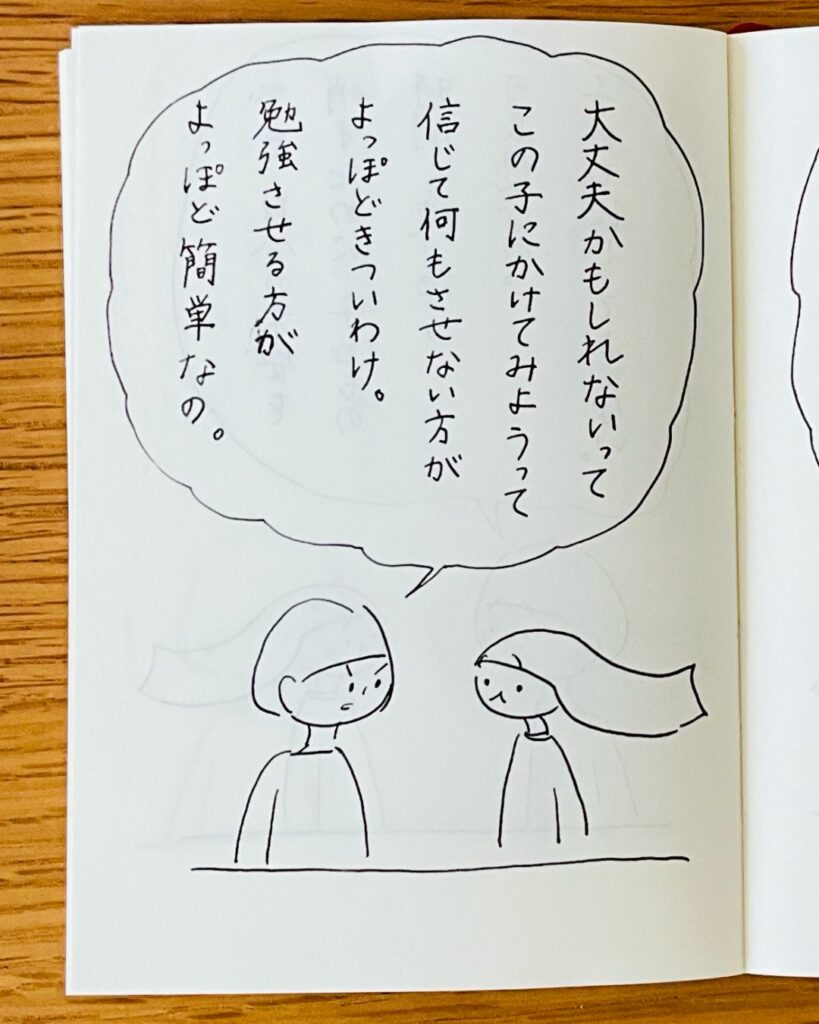 大丈夫かもしれないって
この子にかけてみようって
信じて何もさせない方が
よっぽどきついわけ。
勉強させる方が
よっぽど簡単なの。